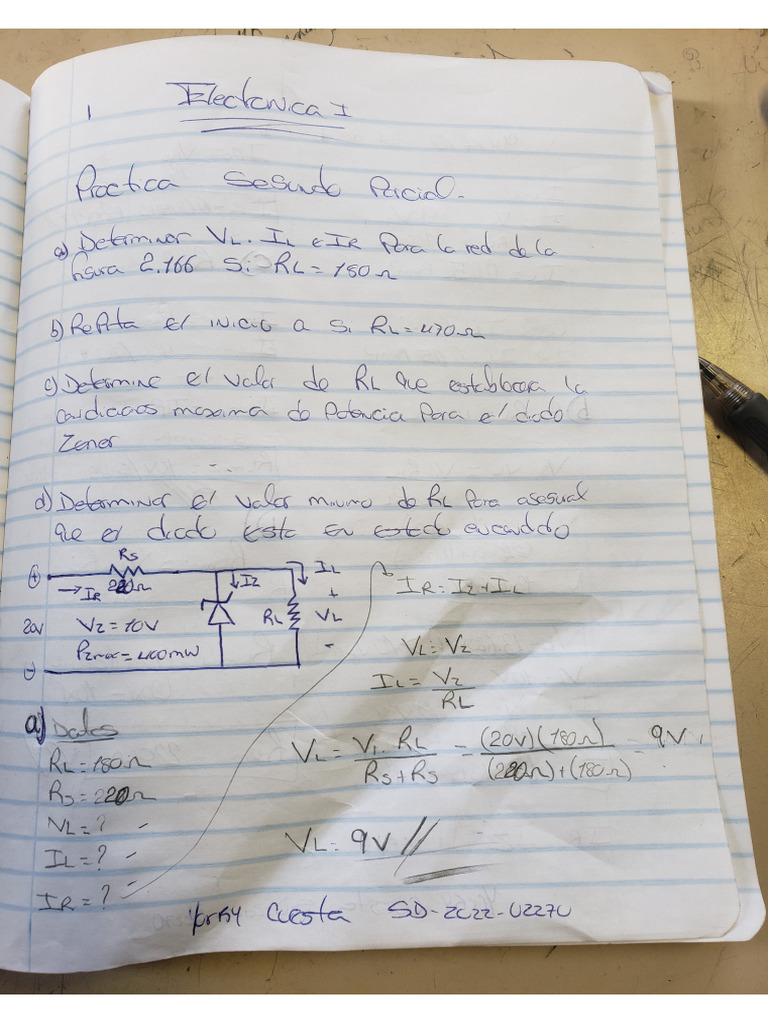 1
Electronica I
Practica Segundo Parcial.
a) Determinar VL. IL e IR Para la red de la
figura 2.166 Si RL = 180Ω
b) Repita el inicio a si RL = 470Ω
c) Determine el valor de RL que establecera la
maxima de Potencia Para el diodo
Zener
d) Determinar el valor de RL Para asegurar
que el diodo este en estado encendido
Rs
220Ω
→ IR
IZ
IL
+
20V
VZ = 10V
PZmax = 400mW
RL
VL
-
IR = IZ + IL
VL = VZ
IL = VZ / RL
a) Datos
RL = 180Ω
Rs = 220Ω
VL = ?
IL = ?
IR = ?
VL = Vi . RL / Rs + Rs = (20V)(180Ω) / (220Ω)+(180Ω) = 9V
VL = 9V //
Cuesta SD-2022-02270